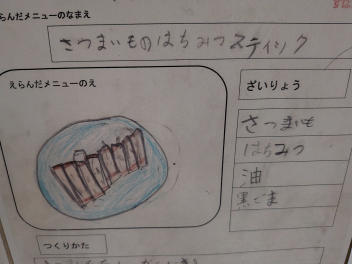 えらんだメニューのなまえ
さつまいものはちみつスティック
えらんだメニューのえ
ざいりょう
さつまいも
はちみつ
油
黒ごま
つくりかた